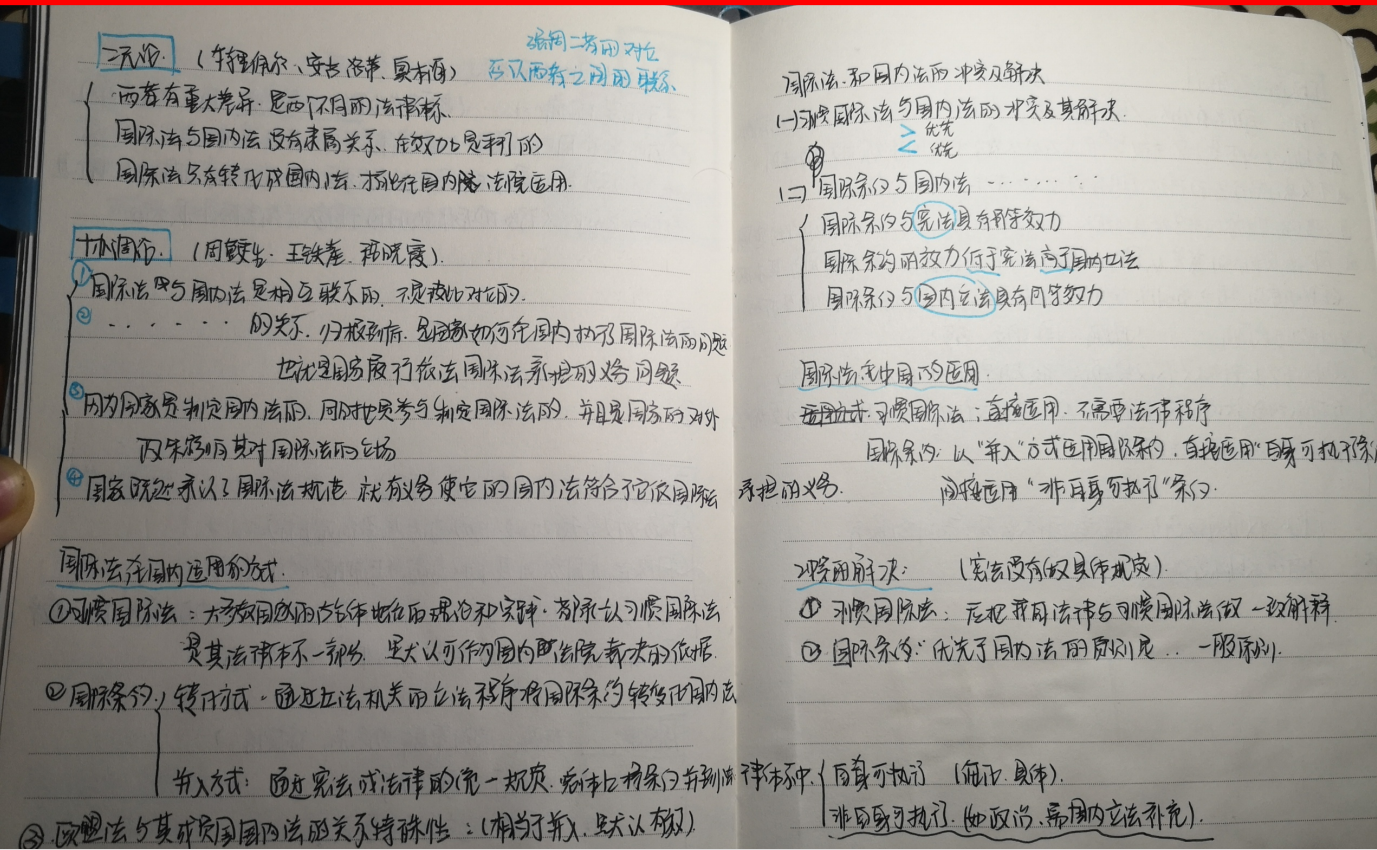 二元论.（特里佩尔、安吉洛蒂、奥本海）
强调二者的对立
否认两者之间的联系
两者有重大差异.是两个不同的法律体系.
国际法与国内法没有隶属关系.在效力上是平行的
国际法只有转化成国内法.才能在国内法院适用.
协调论.（周鲠生.王铁崖.程晓霞）.
①国际法与国内法是相互联系的.不是彼此对立的.
②·······的关系.归根到底.是国家如何在国内执行国际法的问题
也就是国家履行依法国际法承担的义务问题
③因为国家是制定国内法的.同时也是参与制定国际法的.并且是国家的对外
政策影响其对国际法的立场
④国家既然承认了国际法规范 就有义务使它的国内法符合于它依国际法承担的义务.
国际法在国内适用的方式.
①习惯国际法：大多数国家的 理论和实践.都承认习惯国际法
是其法律体系一部分. 默认可作为国内法院裁决的依据.
②国际条约. 转化方式.通过立法机关的立法程序将国际条约转变化国内法
并入方式：通过宪法或法律的统一规定.客体上将条约并到法律体系中.
自身可执行（细化.具体）.
非自身可执行.（如政治、需国内立法补充）.
③.欧盟法与其成员国国内法的关系特殊性：（相当于并入.默认有效）.
国际法.和国内法的冲突及解决
(一)习惯国际法与国内法的冲突及其解决.
> 优先
< 优先
(二)国际条约与国内法·········
国际条约与宪法具有同等效力
国际条约的效力低于宪法高于国内立法
国际条约与国内立法具有同等效力
国际法在中国的适用.
适用方式.习惯国际法：直接适用.不需要法律程序
国际条约：以“并入”方式适用国际条约.直接适用“自身可执行条
间接适用“非自身可执行”条约.
冲突的解决：（宪法没有做具体规定）.
①习惯国际法：应把我国法律与习惯国际法做一致解释.
②国际条约：优先于国内法的原则是..一般原则.